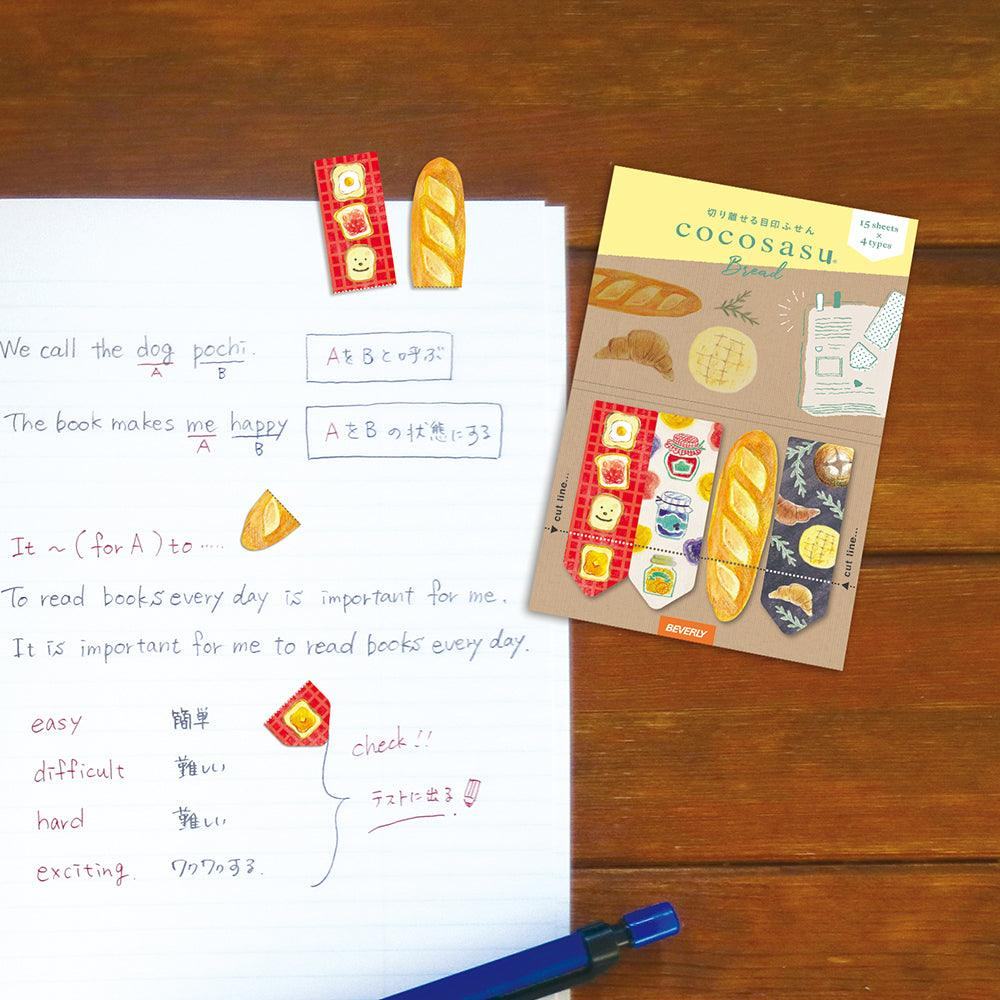 We call the dog pochi.
A B
AをBと呼ぶ
The book makes me happy
A B
AをBの状態にする
It ~ (for A) to .....
To read books every day is important for me.
It is important for me to read books every day.
easy 簡単
difficult 難しい
hard 難しい
exciting. ワクワクする.
check!!
テストに出る
切り離せる目印ふせん
cocosasu®
Bread
15 sheets
×
4 types
cut line...
cut line...
BEVERLY